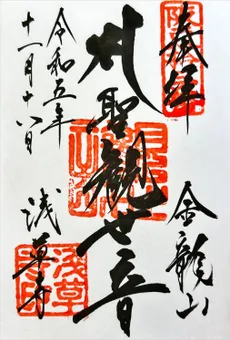 奉拝
金龍山
聖観世音
浅草寺
令和五年
十一月十八日